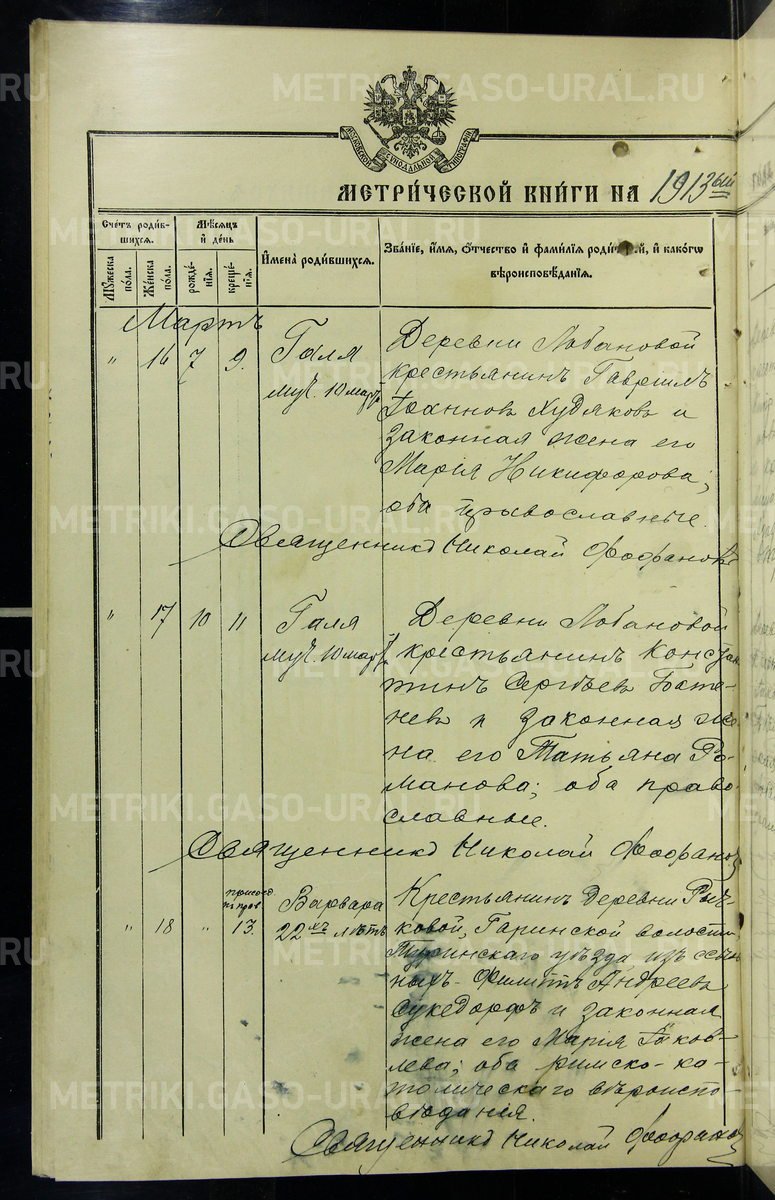 METRIKI.GASO-URAL.RU
МОСКОВСКОЙ СѴНОДАЛЬНОЙ ТИПОГРАФІИ
МЕТРИ́ЧЕСКОЙ КНИ́ГИ НА 1913ый
Счетъ роди́в-
шихся.
Мѹжеска по́ла.
Же́нска по́ла.
Мѣ́сяцъ и҆ де́нь
рожде́нія.
креще́нія.
И҆мена̀ роди́вшихся.
Зва́ніе, и҆́мя, о҆́тчество и҆ фами́лія роди́телей, и҆ како́гѡ
вѣроисповѣ́данія.
Мартъ
" 16 7 9. Галя
муч. 10 мар.
Деревни Лобановой
крестьянинъ Гавріилъ
Іоанновъ Худяковъ и
законная жена его
Марія Никифорова;
оба православные.
Священникъ Николай Фофановъ
" 17 10 11 Галя
муч. 10 мар.
Деревни Лобановой
крестьянинъ Констан
тинъ Сергѣевъ
и законная же-
на его Татьяна Ро-
манова; оба право-
славные.
Священникъ Николай Фофановъ
присоед.
къ прав.
" 18 " 13. Варвара
22хъ лѣтъ
Крестьянинъ деревни Рыч-
ковой, Гаринской волости
Туринскаго уѣзда изъ ссыль
ныхъ Филиппъ Андреевъ
и законная
жена его Марія Яков-
лева; оба римско-ка-
толическаго вѣроиспо-
вѣданія.
Священникъ Николай Фофановъ